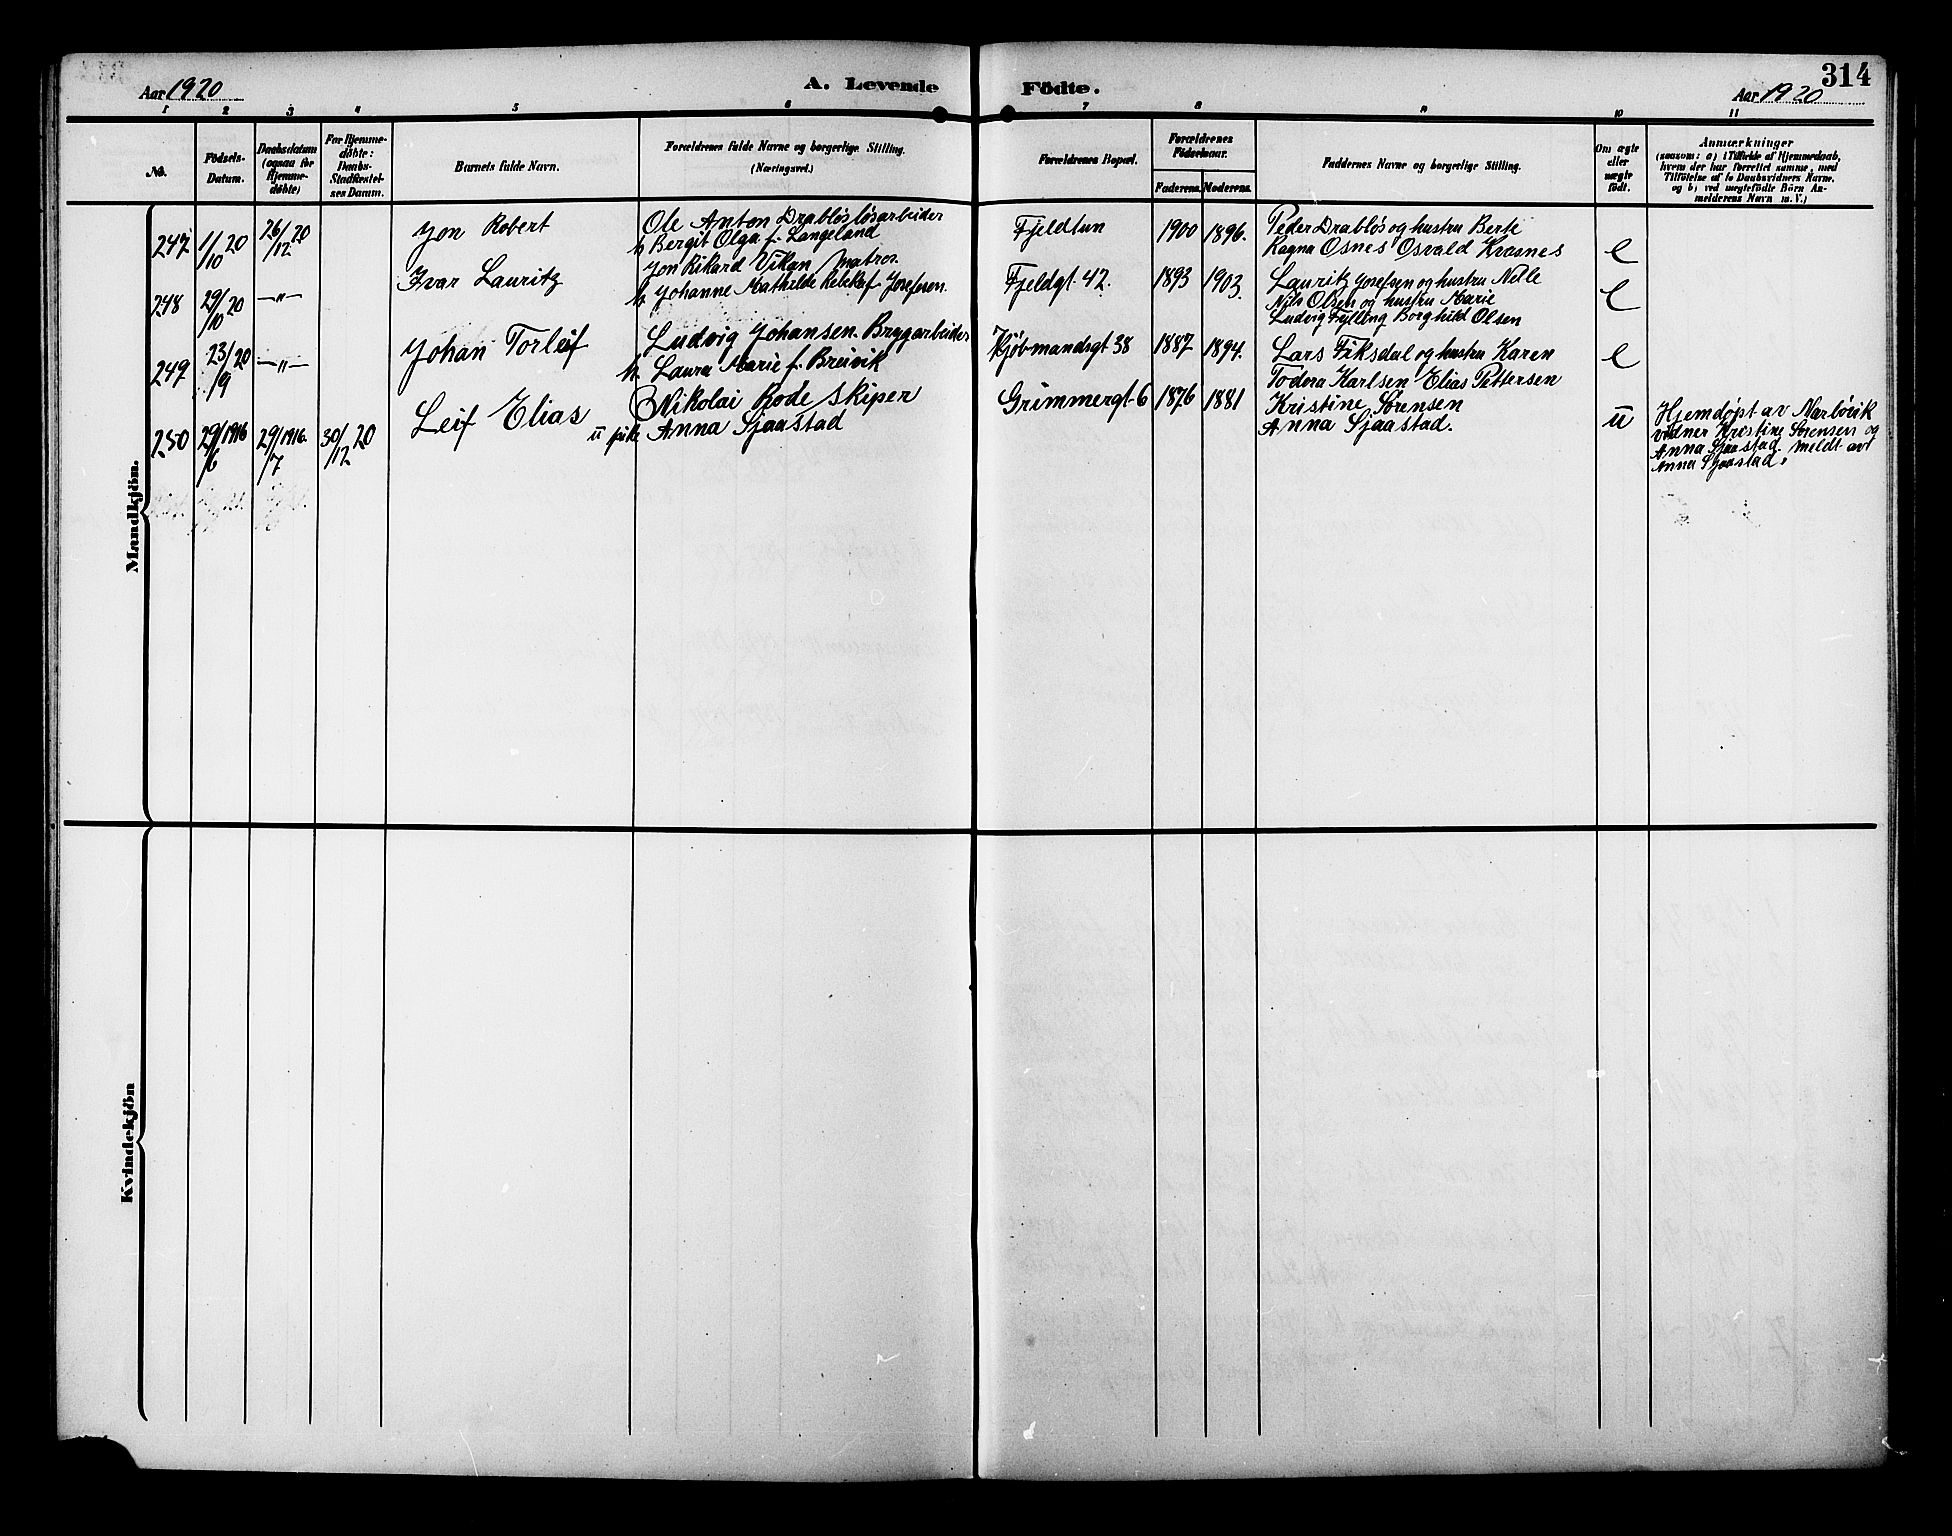 314
Aar 1920
A. Levende
Födte.
Aar 1920
1 2 3 4 5 6 7 8 9 10 11
No.
Födsels-
Datum.
Daabsdatum
(ogsaa for
Hjemme-
döbte)
For Hjemme-
döbte:
Daabs-
Stadfæstel-
ses Datum.
Barnets fulde Navn.
Forældrenes fulde Navne og borgerlige Stilling.
(Næringsvei.)
Forældrenes Bopæl.
Forældrenes
Födselsaar.
Faderens.
Moderens.
Faddernes Navne og borgerlige Stilling.
Om ægte
eller
uægte
födt.
Anmærkninger
(saasom: a) i Tilfælde af Hjemmedaab,
hvem der har forrettet samme, med
Tilföielse af to Daabsvidners Navne.
og b) ved uægtefödte Börn An-
melderens Navn m. V.)
Mandkjön.
247 1/10 20 26/12 20 Jon Robert
Ole Anton Drabløs løsarbeider
h Bergit Olga f. Langeland
Fjeldtun 1900 1896.
Peder Drabløs og hustru Berte
Ragna Osnes Osvald
e
248 29/10 20 —"— Ivar Lauritz
Jon Rikard Vikan Matros
h Johanne Mathilde f. Josefsen.
Fjeldgt 42. 1893 1903.
Lauritz Josefsen og hustru
Nils Olsen og hustru Marie
Ludvig Fylling Borghild Olsen
e
249 23/9 20 —"— Johan Torleif
Ludvig Johansen. Brygarbeider
h. Laura Marie f. Breivik
Kjøbmandsgt 38 1887 1894.
Lars Fiksdal og hustru Karen
Todora Karlsen Elias Pettersen
e
250 29/6 1916 29/7 1916. 30/12 20 Leif Elias
Nikolai Bode Skiper
u pike Anna Sjaastad
Grimmergt 6 1876 1881
Kristine Sørensen
Anna Sjaastad.
u
Hjemdøpt av
vidner Kristine Sørensen og
Anna Sjaastad. Meldt av
Anna Sjaastad.
Kvindekjön